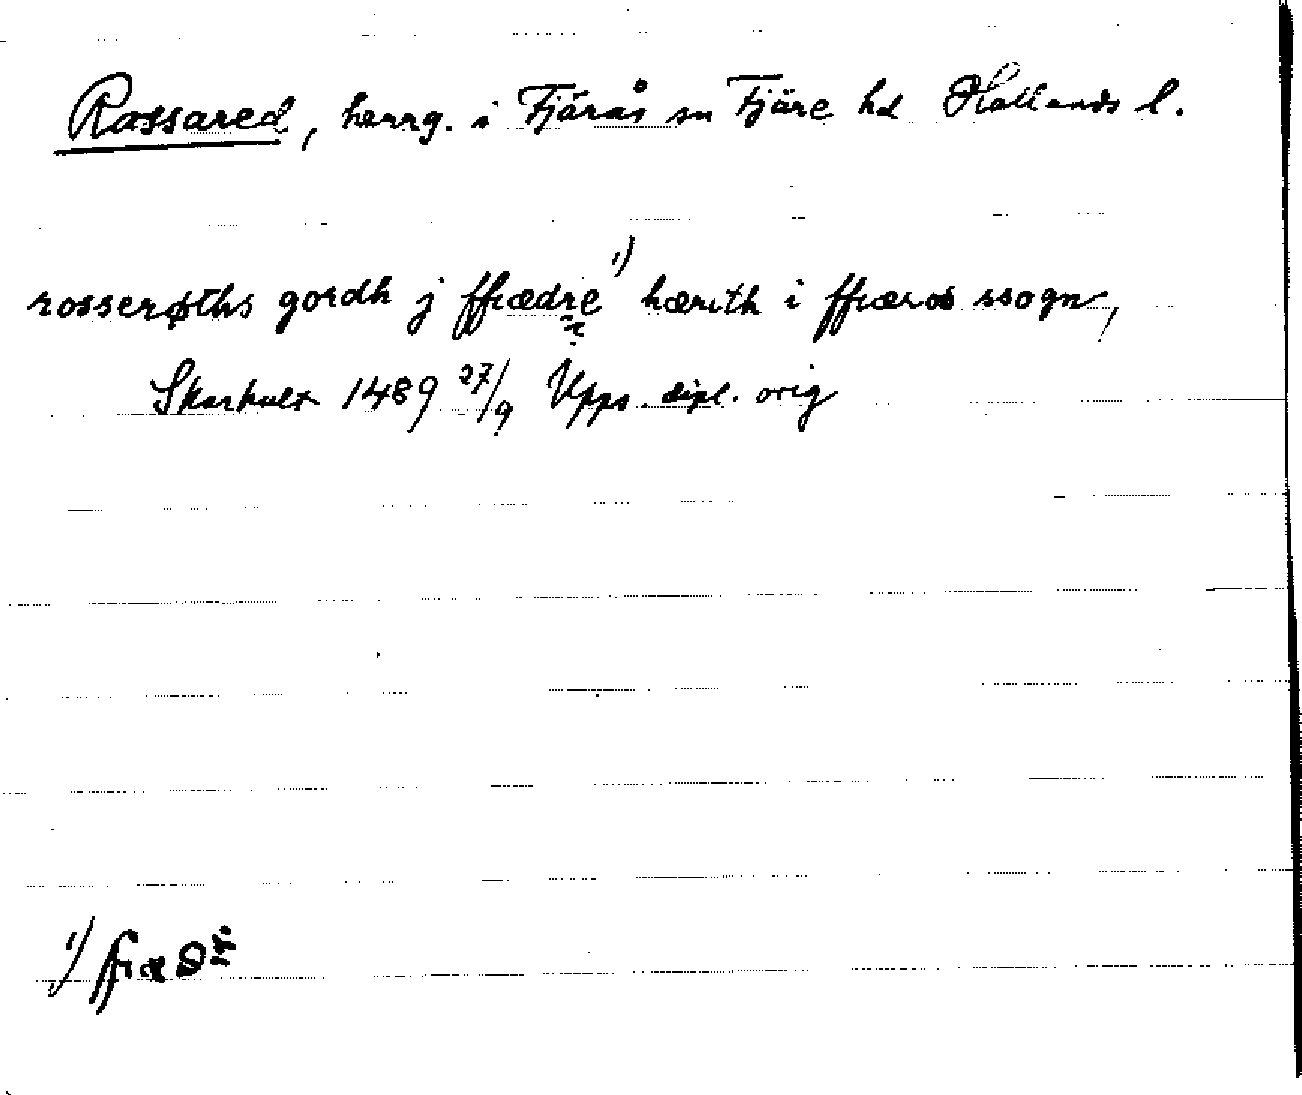 Rossared, herrg. i Fjärås sn Fjäre hd Hallands l.
rosserøths gordh j ffiædre 1) hærith i ffiæros ssogn,
Skarhult 1489 27/9 Upps. dipl. orig
1) ffiæd